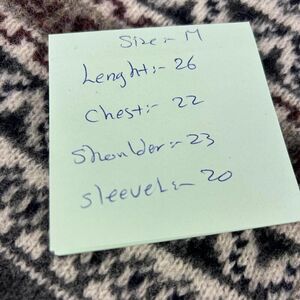 Size:- M
Lenght:- 26
Chest:- 22
Shoulder:- 23
SleeveL:- 20